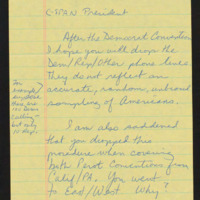 C-SPAN President
After the Democrat Convention
I hope you will drop the
Dem/Rep/Other phone lines.
They do not reflect an
accurate, random, national
sampling of Americans.
I am also saddened
that you dropped this
procedure when covering
both Perot Conventions from
Calif/PA. You went
to East/West. Why?
For
example,
there are
Dems
calling
but only